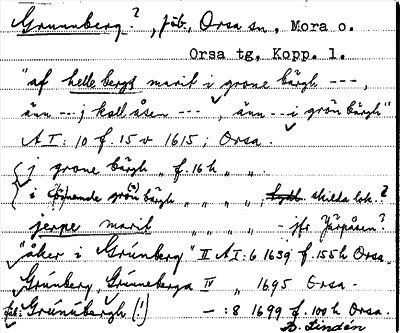 Grunnberg?, fäb., Orsa sn, Mora o.
Orsa tg, Kopp. l.
"af helle bergs marit i grone bärgh ---,
änn --- j kallåsen ---, änn --- i grön bärgh"
A I: 10 f. 15 v 1615; Orsa.
j grone bärgh " f. 16 h " ".
i grön bärgh " " " ", skilda lok.?
jerpe marit " " " " - jfr Järpåsen?
"åker i Grúnberg" II A I: 6 1639 f. 155 h Orsa.
Grúnberg, Grúnneberga IV " 1695 Orsa.
fäb: Grúnúbergh (!) — :8 1699 f. 100 h Orsa.
B. Lindén